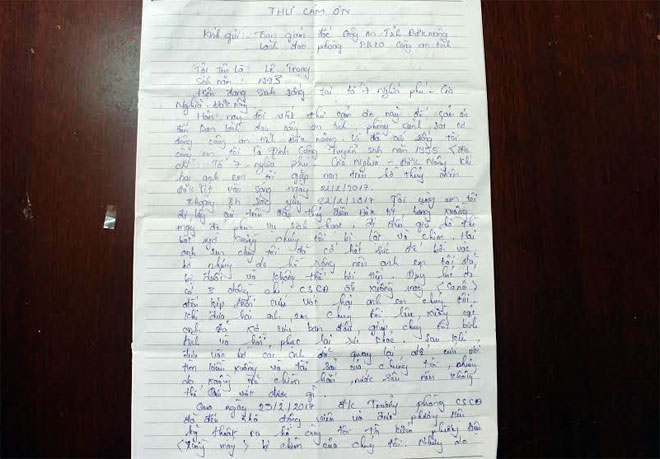 THƯ CẢM ƠN
Kính gửi: Ban giám đốc Công an Tỉnh Đăk nông
Lãnh đạo phòng PK20 Công an tỉnh
Tôi Tên Là: Lê Trung
Sinh năm: 1993
Hiện đang sinh sống tại tổ 7 Nghĩa phú - Gia
Nghĩa. Đăk nông
Hôm nay tôi viết thư cảm ơn này để cảm ơn
Ban lãnh đạo công an tỉnh phòng cảnh sát cơ
động công an tỉnh Đăk nông. Vì đã cứu sống tôi
cùng em tôi là Đinh Công Tuyển sinh năm 1995 (địa
chỉ: Tổ 7 - nghĩa phú - Gia Nghĩa - Đăk Nông) khi
hai anh em tôi gặp nạn trên hồ thủy điện
Đăk tít vào sáng ngày 22/2/2017
Khoảng 8h sáng ngày 22/2/2017 Tôi cùng em tôi
đi lấy cá trên đập thủy điện Đăk tít bằng xuồng
máy để phục vụ sinh hoạt, đi đến giữa hồ thì
xuồng chúng tôi bị lật và chìm. Hai
anh em chúng tôi đã cố hết sức để bơi vào
bờ nhưng do hồ rộng nên anh em tôi đã
bị đuối và không thể bơi tiếp. Ngay lúc đó
có 5 đồng chí CSCĐ đi xuồng máy (Canô)
đến kịp thời cứu vớt hai anh em chúng tôi.
Khi đưa hai anh em chúng tôi lên xuồng các
anh đã sơ cứu ban đầu giúp chúng tôi bình
tĩnh và hồi phục lại sức khỏe. Sau khi
đưa vào bờ các anh đã quay lại để
tìm kiếm xuồng và tài sản của chúng tôi nhưng
do xuồng đã chìm hẳn, nước sâu nên không
thể vớt được gì.
Qua ngày 23/2/2017 đ/c Trưởng phòng CSCĐ
đã đến nhà động viên và đưa phương tiện
kỹ thuật ra hồ cùng tôi tìm kiếm phương tiện
(Xuồng máy) bị chìm của chúng tôi. Nhưng do